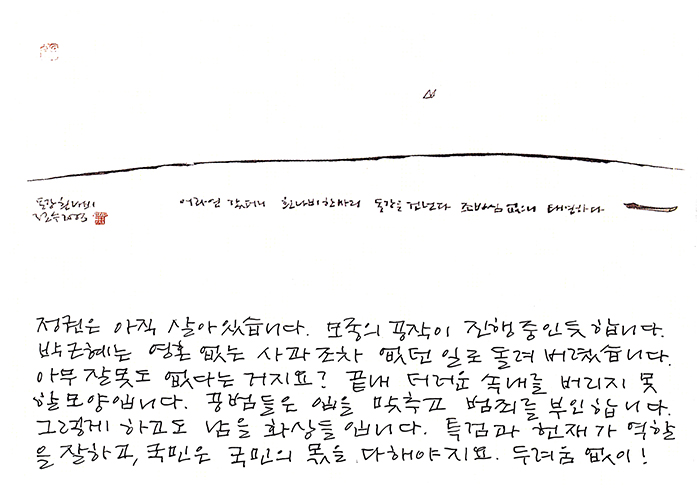 동강 흰나비
어라연 갔더니 흰나비 한 마리 동강을 건넌다 조바심 없으니 태연하다
정권은 아직 살아있습니다. 모종의 공작이 진행중인듯 합니다.
박근혜는 영혼 없는 사과조차 없던 일로 돌려 버렸습니다.
아무 잘못도 없다는 거지요? 끝내 더러운 속내를 버리지 못
할 모양입니다. 공범들은 입을 맞추고 범죄를 부인합니다.
그렇게 하고도 남을 화상들입니다. 특검과 헌재가 역할
을 잘하고, 국민은 국민의 몫을 다해야지요. 두려움 없이!